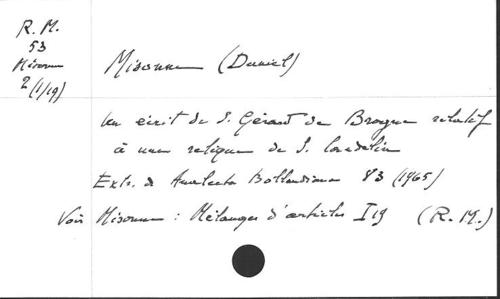 R. M.
53
Misonne
2 (1/19)
Misonne (Daniel)
Un écrit de S. Gérard de Brogne relatif
à une relique de S. Landelin
Extr. de Analecta Bollandiana 83 (1965)
Voir Misonne : Mélanges d'articles I 19 (R. M.)